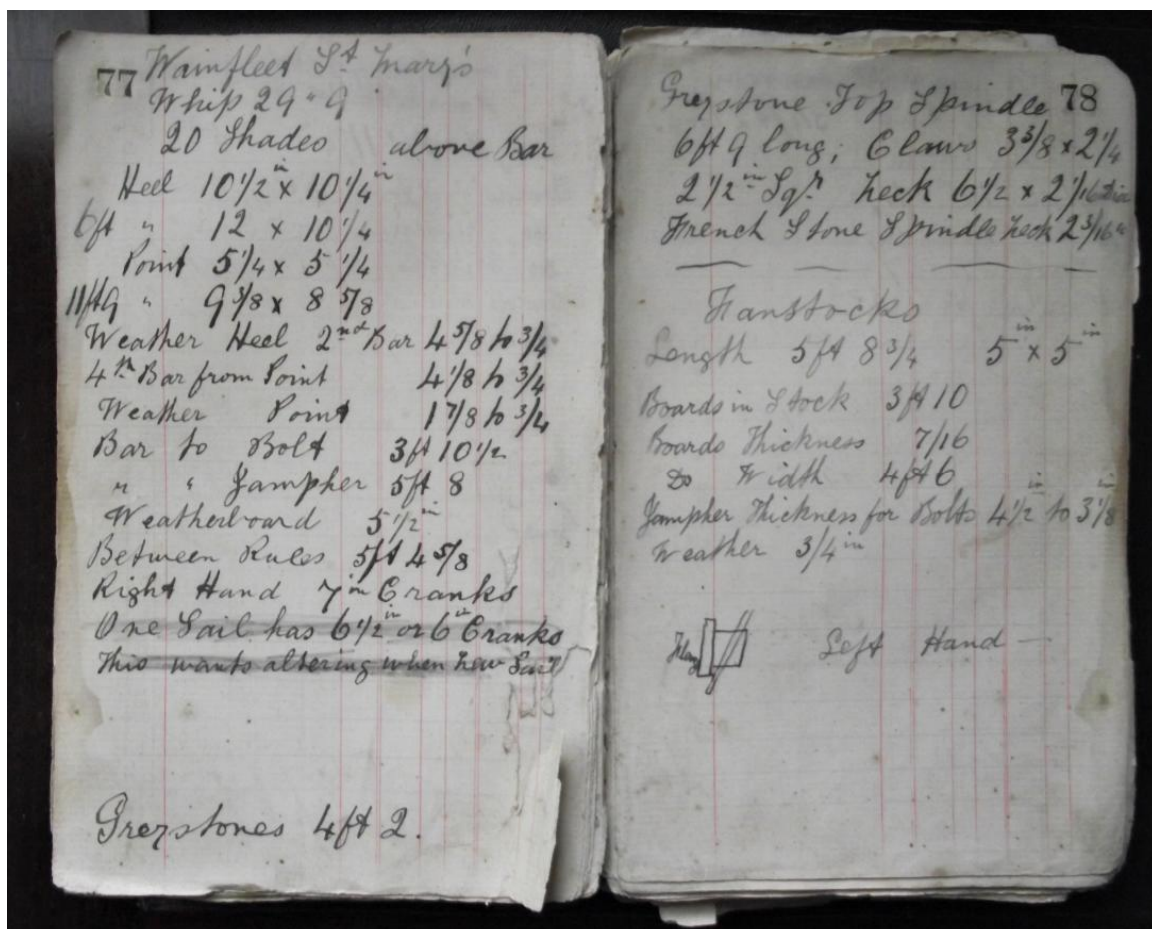 77 Wainfleet St Mary's
Whip 29 " 9
20 Shades above Bar
Heel 10 1/2 in x 10 1/4 in
6ft " 12 x 10 1/4
Point 5 1/4 x 5 1/4
11ft9 " 9 3/8 x 8 5/8
Weather Heel 2nd Bar 4 5/8 to 3/4
4th Bar from Point 4 1/8 to 3/4
Weather Point 1 7/8 to 3/4
Bar to Bolt 3ft 10 1/2
" " Jampher 5ft 8
Weatherboard 5 1/2 in
Between Rules 5ft 4 5/8
Right Hand 7 in Cranks
One Sail has 6 1/2 in or 6 in Cranks
This wants altering when new Sail
Greystones 4ft 2.
Greystone Top Spindle 78
6ft 9 long; Claws 3 3/8 x 2 1/4
2 1/2 in Sqr. neck 6 1/2 x 2 1/16
French Stone Spindle neck 2 3/16 in
Fanstocks
Length 5ft 8 3/4 5 in x 5 in
Boards in Stock 3ft 10
Boards Thickness 7/16
Do Width 4ft 6
Jampher Thickness for Bolts 4 1/2 in to 3 1/8 in
Weather 3/4 in
Left Hand —